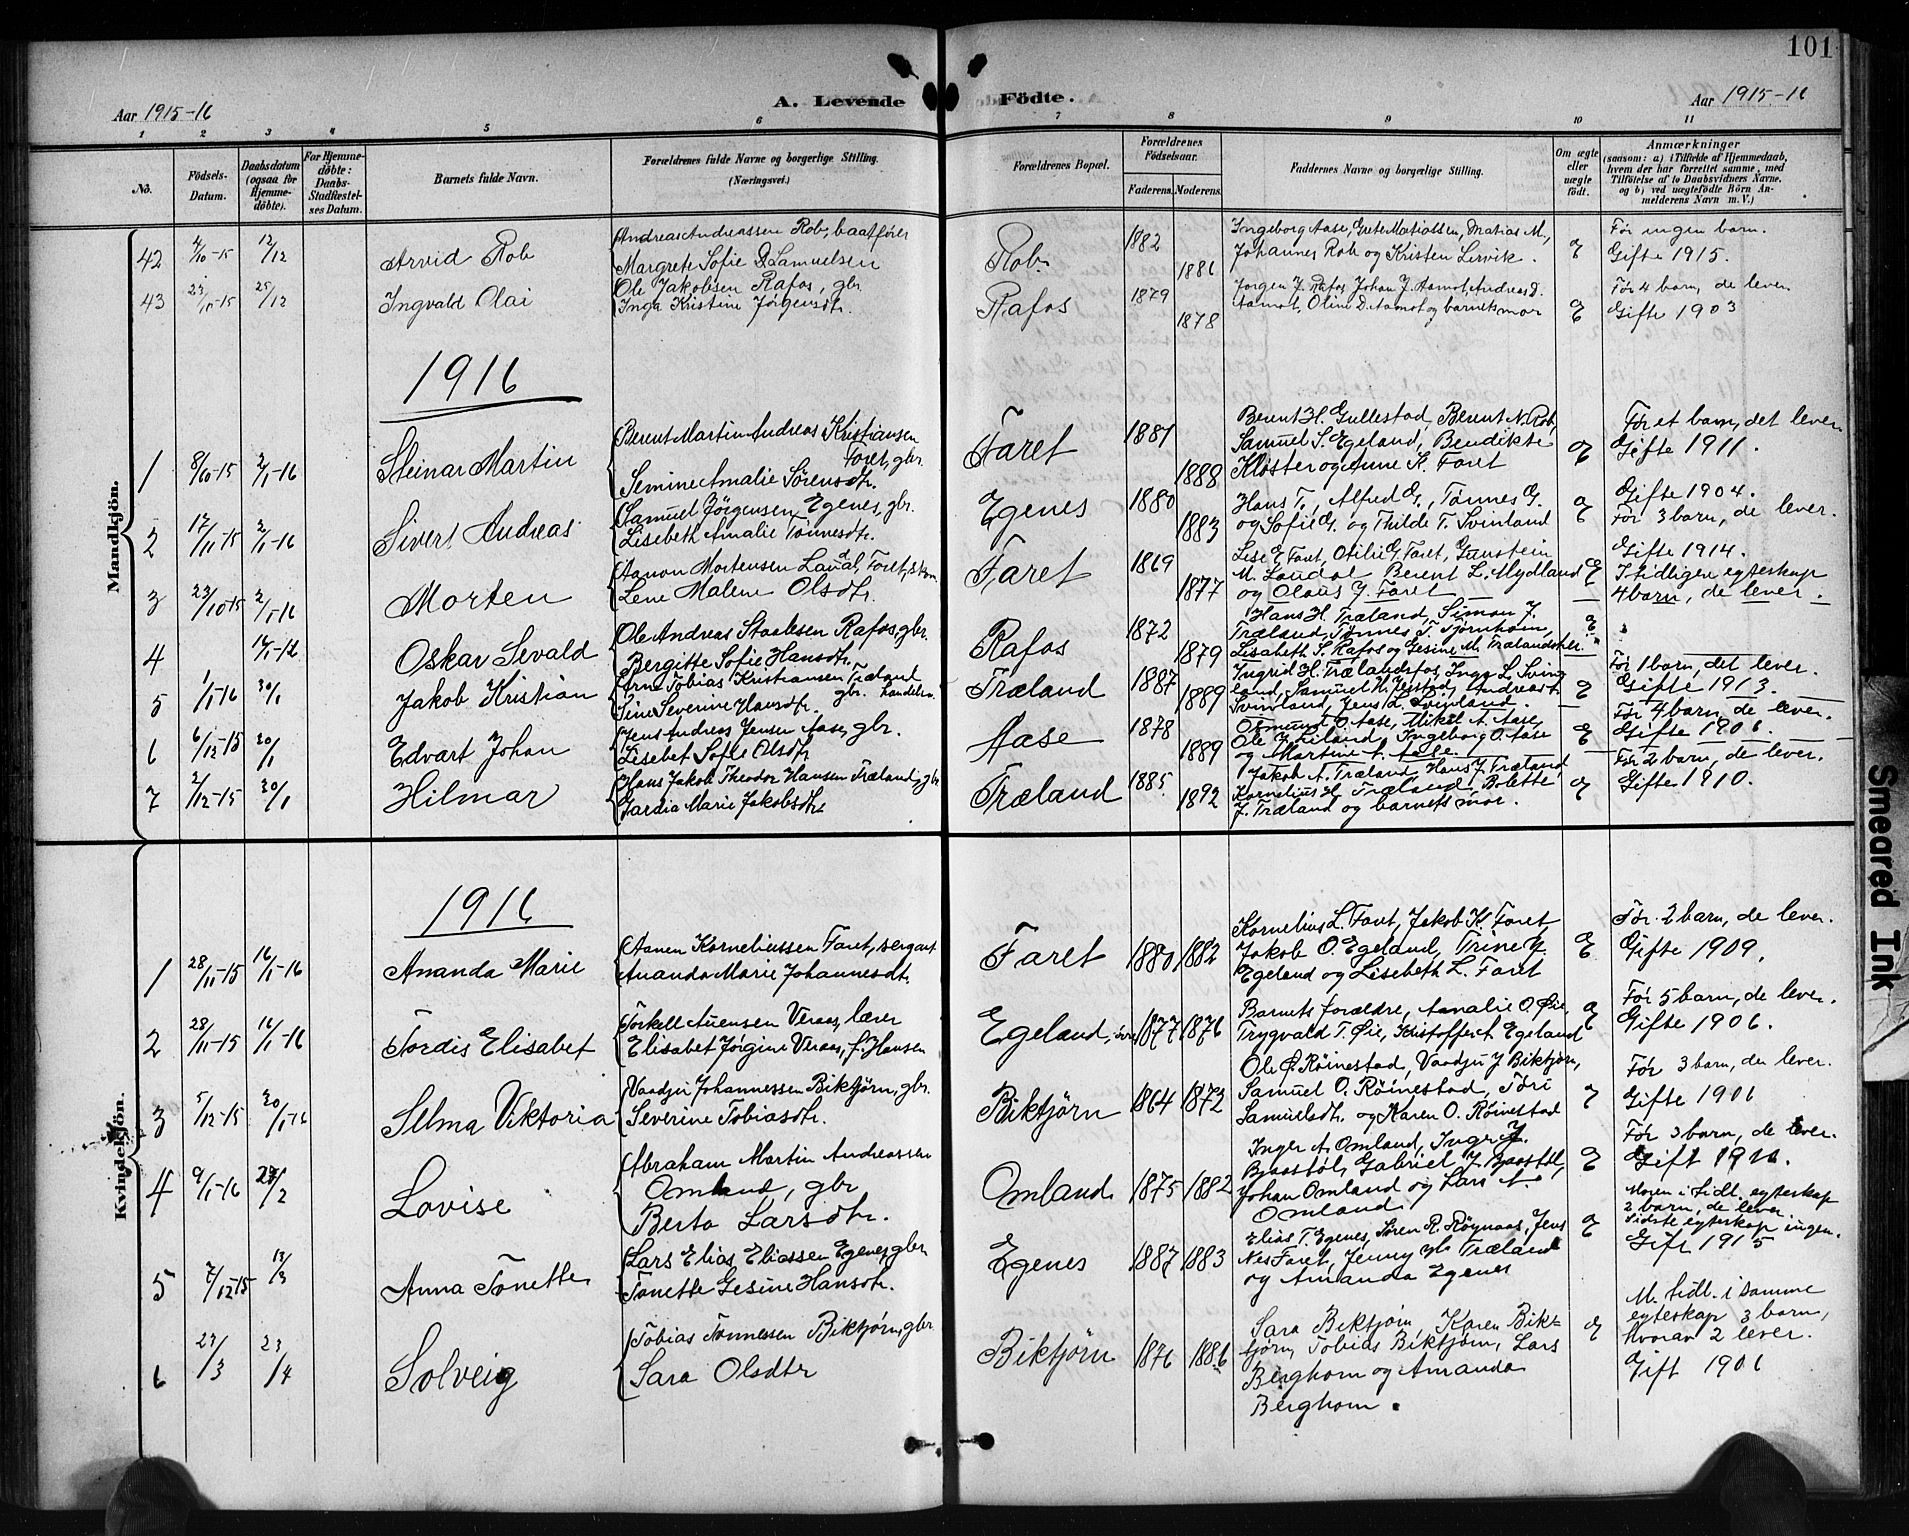 101
Aar 1915-16
A. Levende Födte.
Aar 1915-16
1 2 3 4 5 6 7 8 9 10 11
No.
Födsels-Datum.
Daabsdatum (ogsaa for Hjemme-döbte).
For Hjemme-döbte: Daabs-Stadfæstel-ses Datum.
Barnets fulde Navn.
Forældrenes fulde Navne og borgerlige Stilling. (Næringsvei.)
Forældrenes Bopæl.
Forældrenes Födselsaar.
Faderens. Moderens.
Faddernes Navne og borgerlige Stilling.
Om ægte eller uægte födt.
Anmærkninger
(saasom: a) i Tilfælde af Hjemmedaab, hvem der har forrettet samme, med Tilföielse af to Daabsvidners Navne, og b) ved uægtefödte Börn An-melderens Navn m. V.)
Mandkjön.
42 12/12 Arvid Rob
Andreas Andreassen Rob, baatfører
Margrete Sofie Samuelsen
Rob. 1882 1886
Ingeborg Aase, Grete Matiassen, Matias M.,
Johannes Rob og Kristen Lervik.
Før ingen barn.
Gifte 1915.
43 25/12 Ingvald Olai
Ole Jakobsen Rafos, gbr.
Inga Kristine Jørgensdtr.
Rafos 1879 1878
Jørgen J. Rafos, Johan J. Aamot, Andreas D.
Aamot, Oline D. Aamot og barnets mor
Før 4 barn, de lever
Gifte 1903
1916
1 8/10-15 2/1-16 Steinar Martin
Berent Martin Andreas Kristiansen
Faret, gbr.
Semine Amalie Sørensdtr.
Faret 1887 1888
Berent H. Gullestad, Berent N. Rob,
Samuel S. Egeland, Bendikte
Kloster og Anne K. Faret
Før et barn, det lever
Gifte 1911.
2 17/11-15 2/1-16 Sivert Andreas
Samuel Jörgensen Egenes, gbr.
Lisebeth Amalie Tönnesdtr.
Egenes 1880 1883
Hans T., Alfred G., Tønnes G.
og Sofie G. og Thilde T. Svinland
Gifte 1904.
Før 3 barn, de lever.
3 23/10-15 2/1-16 Morten
Aanon Mortensen Laudal, Faret,
Lene Malene Olsdtr.
Faret 1869 1877
Lise E Faret, Otilie G. Faret, Gunstein
M. Laudal, Berent L. Mydland
og Olaus J. Faret
Gifte 1914.
I tidligere egteskap
4 barn, de lever.
4 Oskar Sevald
Ole Andreas Staalesen Rafos, gbr.
Bergitte Sofie Hansdtr.
Rafos 1872 1879
Hans H. Træland, Simon J.
Træland, Tønnes T. Tjørnhom,
Lisabeth S. Rafos og Gesine M. Trælandsker.
5 1/1-16 30/1 Jakob Kristian
Arne Tobias Kristiansen Træland
gbr. handelsm.
Sine Severine Hansdtr.
Træland 1887 1889
Ingrid H. Trælandsfos, Inga L. Svin
land, Samuel H. , Andreas
Svinland, Jens L. Svinland.
Før 1 barn, det lever.
Gifte 1913.
6 6/12-15 30/1 Edvart Johan
Jens Andreas Jensen Aase, gbr.
Lisebet Sofie Olsdtr.
Aase 1878 1889
Osmund O. Aase, Mikal A. Aase,
Ole J. Liland, Ingeborg O. Aase
og Martine A. Aase.
Før 4 barn, de lever.
Gifte 1906.
7 2/12-15 30/1 Hilmar
Hans Jakob Theodor Hansen Træland, gbr
Jardia Marie Jakobsdtr.
Træland 1885 1892
Jakob A. Træland, Hans J. Træland,
Kornelius H. Træland, Bolette
J. Træland og barnets mor.
Før 2 barn, de lever.
Gifte 1910.
Kvindekjön.
1916
1 28/11-15 16/1-16 Ananda Marie
Aanen Korneliussen Faret, sergant
Ananda Marie Johannesdtr.
Faret 1880 1882
Kornelius L. Faret, Jakob K. Faret,
Jakob O. Egeland, Trine
Egeland og Lisebeth L. Faret
Før 2 barn, de lever.
Gifte 1909.
2 28/11-15 16/1-16 Tordis Elisabet
Torkell Auensen Veraas, lærer
Elisabet Jørgine Veraas, f. Hansen
Egeland, 1877 1876
Barnets forældre, Amalie O. Øie,
Trygvald T. Øie, Kristoffer A. Egeland
Før 5 barn, de lever.
Gifte 1906.
3 5/12-15 30/1-16 Selma Viktoria
Vaadju Johannessen Biktjørn, gbr.
Severine Tobiasdtr.
Biktjørn 1864 1873
Ole O. Röinestad, Vaadju J Biktjørn,
Samuel O. Röinestad, Tori
Samuelsdtr. og Karen O. Röinestad
Før 3 barn, de lever.
Gifte 1906
4 9/1-16 Lovise
Abraham Martin Andreassen
Omland, gbr
Berta Larsdtr.
Omland 1875 1882
Inger A. Omland, Inger J.
Baastöl, Gabriel J. Baastöl,
Johan Omland og Lars A
Omland.
Før 3 barn, de lever.
Gift 1911.
5 7/12-15 13/3 Anna Tonette
Lars Elias Eliassen Egenes, gbr
Tonette Gesine Hansdtr.
Egenes 1887 1883
Elias T. Egenes, Søren R. Røynaas, Jens
Nes Faret, Jenny Træland
og Amanda Egenes
Moren i tidl. egteskap
2 barn, de lever.
Sidste egteskap ingen.
Gift 1915
6 23/3 23/4 Solveig
Tobias Tønnessen Biktjørn, gbr
Sara Olsdtr
Biktjörn 1876 1886
Sara Biktjørn, Karen Bik-
tjørn, Tobias Biktjørn, Lars
Berghom og Amanda
Berghom.
M. tidl. i samme
egteskap 3 barn,
hvorav 2 lever.
Gift 1906
Smeared Ink